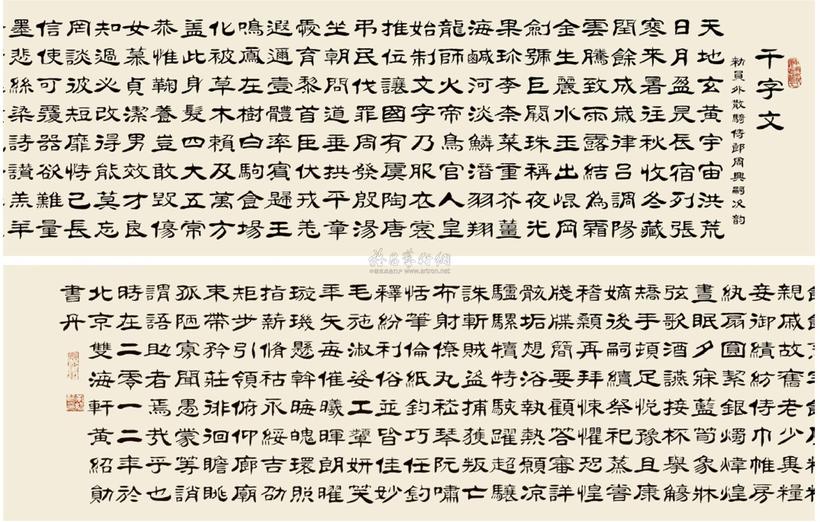 千字文
勅員外散騎侍郎周興嗣次韵
天地玄黃宇宙洪荒
日月盈昃辰宿列張
寒來暑往秋收冬藏
閏餘成歲律呂調陽
雲騰致雨露結為霜
金生麗水玉出崐岡
劍號巨闕珠稱夜光
果珍李柰菜重芥薑
海鹹河淡鱗潛羽翔
龍師火帝鳥官人皇
始制文字乃服衣裳
推位讓國有虞陶唐
弔民伐罪周發殷湯
坐朝問道垂拱平章
愛育黎首臣伏戎羌
遐邇壹體率賓歸王
鳴鳳在樹白駒食場
化被草木賴及萬方
蓋此身髮四大五常
恭惟鞠養豈敢毀傷
女慕貞潔男效才良
知過必改得能莫忘
罔談彼短靡恃己長
信使可覆器欲難量
墨悲絲染詩讚羔羊
親戚故舊老少異糧
妾御績紡侍巾帷房
紈扇圓絜銀燭煒煌
晝眠夕寐藍筍象牀
弦歌酒讌接杯舉觴
矯手頓足悅豫且康
嫡後嗣續祭祀蒸嘗
稽顙再拜悚懼恐惶
牋牒簡要顧答審詳
骸垢想浴執熱願涼
驢騾犢特駭躍超驤
誅斬賊盜捕獲叛亡
布射僚丸嵇琴阮嘯
恬筆倫紙鈞巧任釣
釋紛利俗並皆佳妙
毛施淑姿工顰妍笑
年矢每催曦暉朗曜
璇璣懸斡晦魄環照
指薪脩祜永綏吉劭
矩步引領俯仰廊廟
束帶矜莊徘徊瞻眺
孤陋寡聞愚蒙等誚
謂語助者焉哉乎也
時在二零一二年於
北京雙海軒黃紹勛
書丹